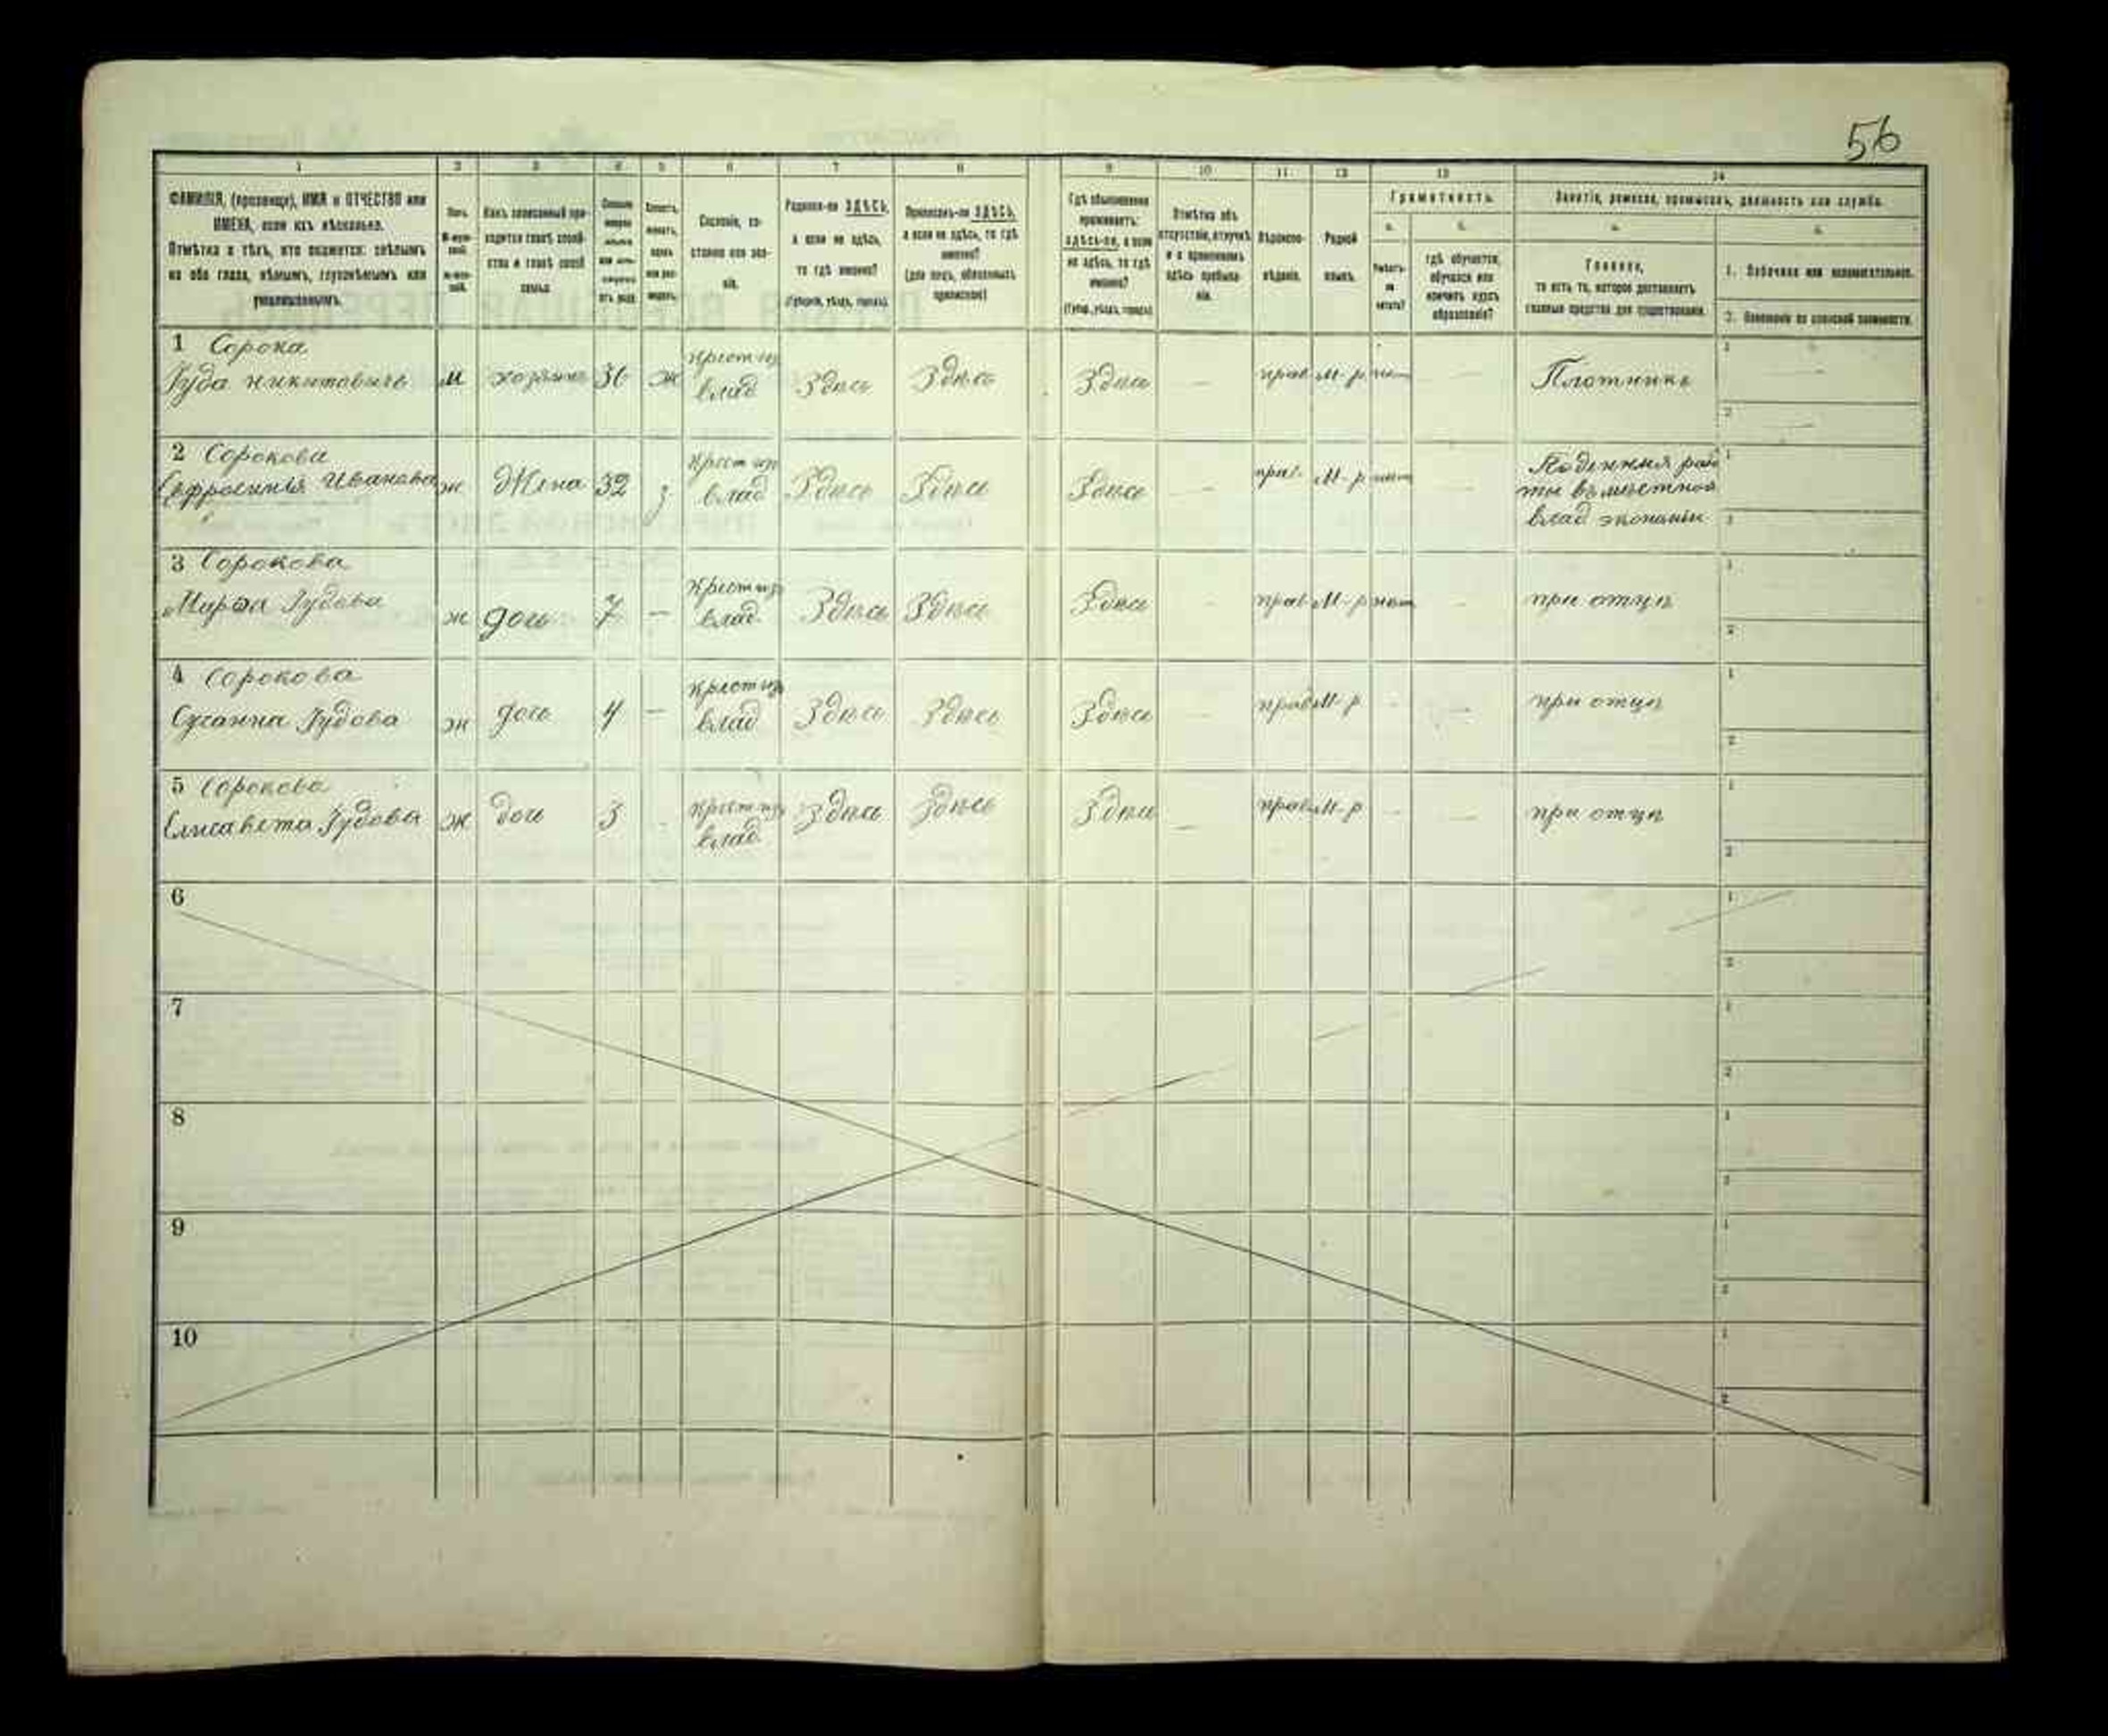 56
1 2 3 4 5 6 7 8 9 10 11 12 13 14
ФАМИЛІЯ, (прозвище), ИМЯ и ОТЧЕСТВО или
ИМЕНА, если ихъ нѣсколько.
Отмѣтка о тѣхъ, кто окажется: слѣпымъ
на оба глаза, нѣмымъ, глухонѣмымъ или
умалишеннымъ.
Полъ.
Какъ записанный при-
ходится главѣ хозяй-
ства и главѣ своей
семьи.
Сословіе, со-
стояніе или зва-
ніе.
Родился-ли ЗДѢСЬ,
а если не здѣсь,
то гдѣ именно?
(Губернія, уѣздъ, городъ).
Приписанъ-ли ЗДѢСЬ,
а если не здѣсь, то гдѣ
именно?
(для лицъ, обязанныхъ
припискою)
Гдѣ обыкновенно
проживаетъ:
здѣсь-ли, а если
не здѣсь, то гдѣ
именно?
(Губер., уѣздъ, городъ)
Отмѣтка объ
отсутствіи, отлучкѣ
и о временномъ
здѣсь пребыва-
ніи.
Вѣроиспо-
вѣданіе.
Родной
языкъ.
Грамотность.
а. б.
Умѣетъ-
ли
читать?
гдѣ обучается,
обучался или
кончилъ курсъ
образованія?
Занятіе, ремесло, промыселъ, должность или служба.
а. б.
Главное,
то есть то, которое доставляетъ
главныя средства для существованія.
1. Побочное или вспомогательное.
2. Положеніе по воинской повинности.
1 Сорока
Іуда Никитовичъ м хозяинъ 36 ж крест из влад Здѣсь Здѣсь Здѣсь — прав М-р нет — Плотникъ
2 Сорокова
Ефросинія Иванова ж Жена 32 з крест из влад Здѣсь Здѣсь Здѣсь — прав М-р нет — Поденныя рабо
ты въ местной
влад экономіи
3 Сорокова
Марѳа Іудова ж дочь 7 — крест из влад Здѣсь Здѣсь Здѣсь — прав М-р нет — при отцѣ
4 Сорокова
Сусанна Іудова ж дочь 4 — крест из влад Здѣсь Здѣсь Здѣсь — прав М-р — — при отцѣ
5 Сорокова
Елисавета Іудова ж дочь 3 крест из влад Здѣсь Здѣсь Здѣсь — прав М-р — — при отцѣ
6
7
8
9
10